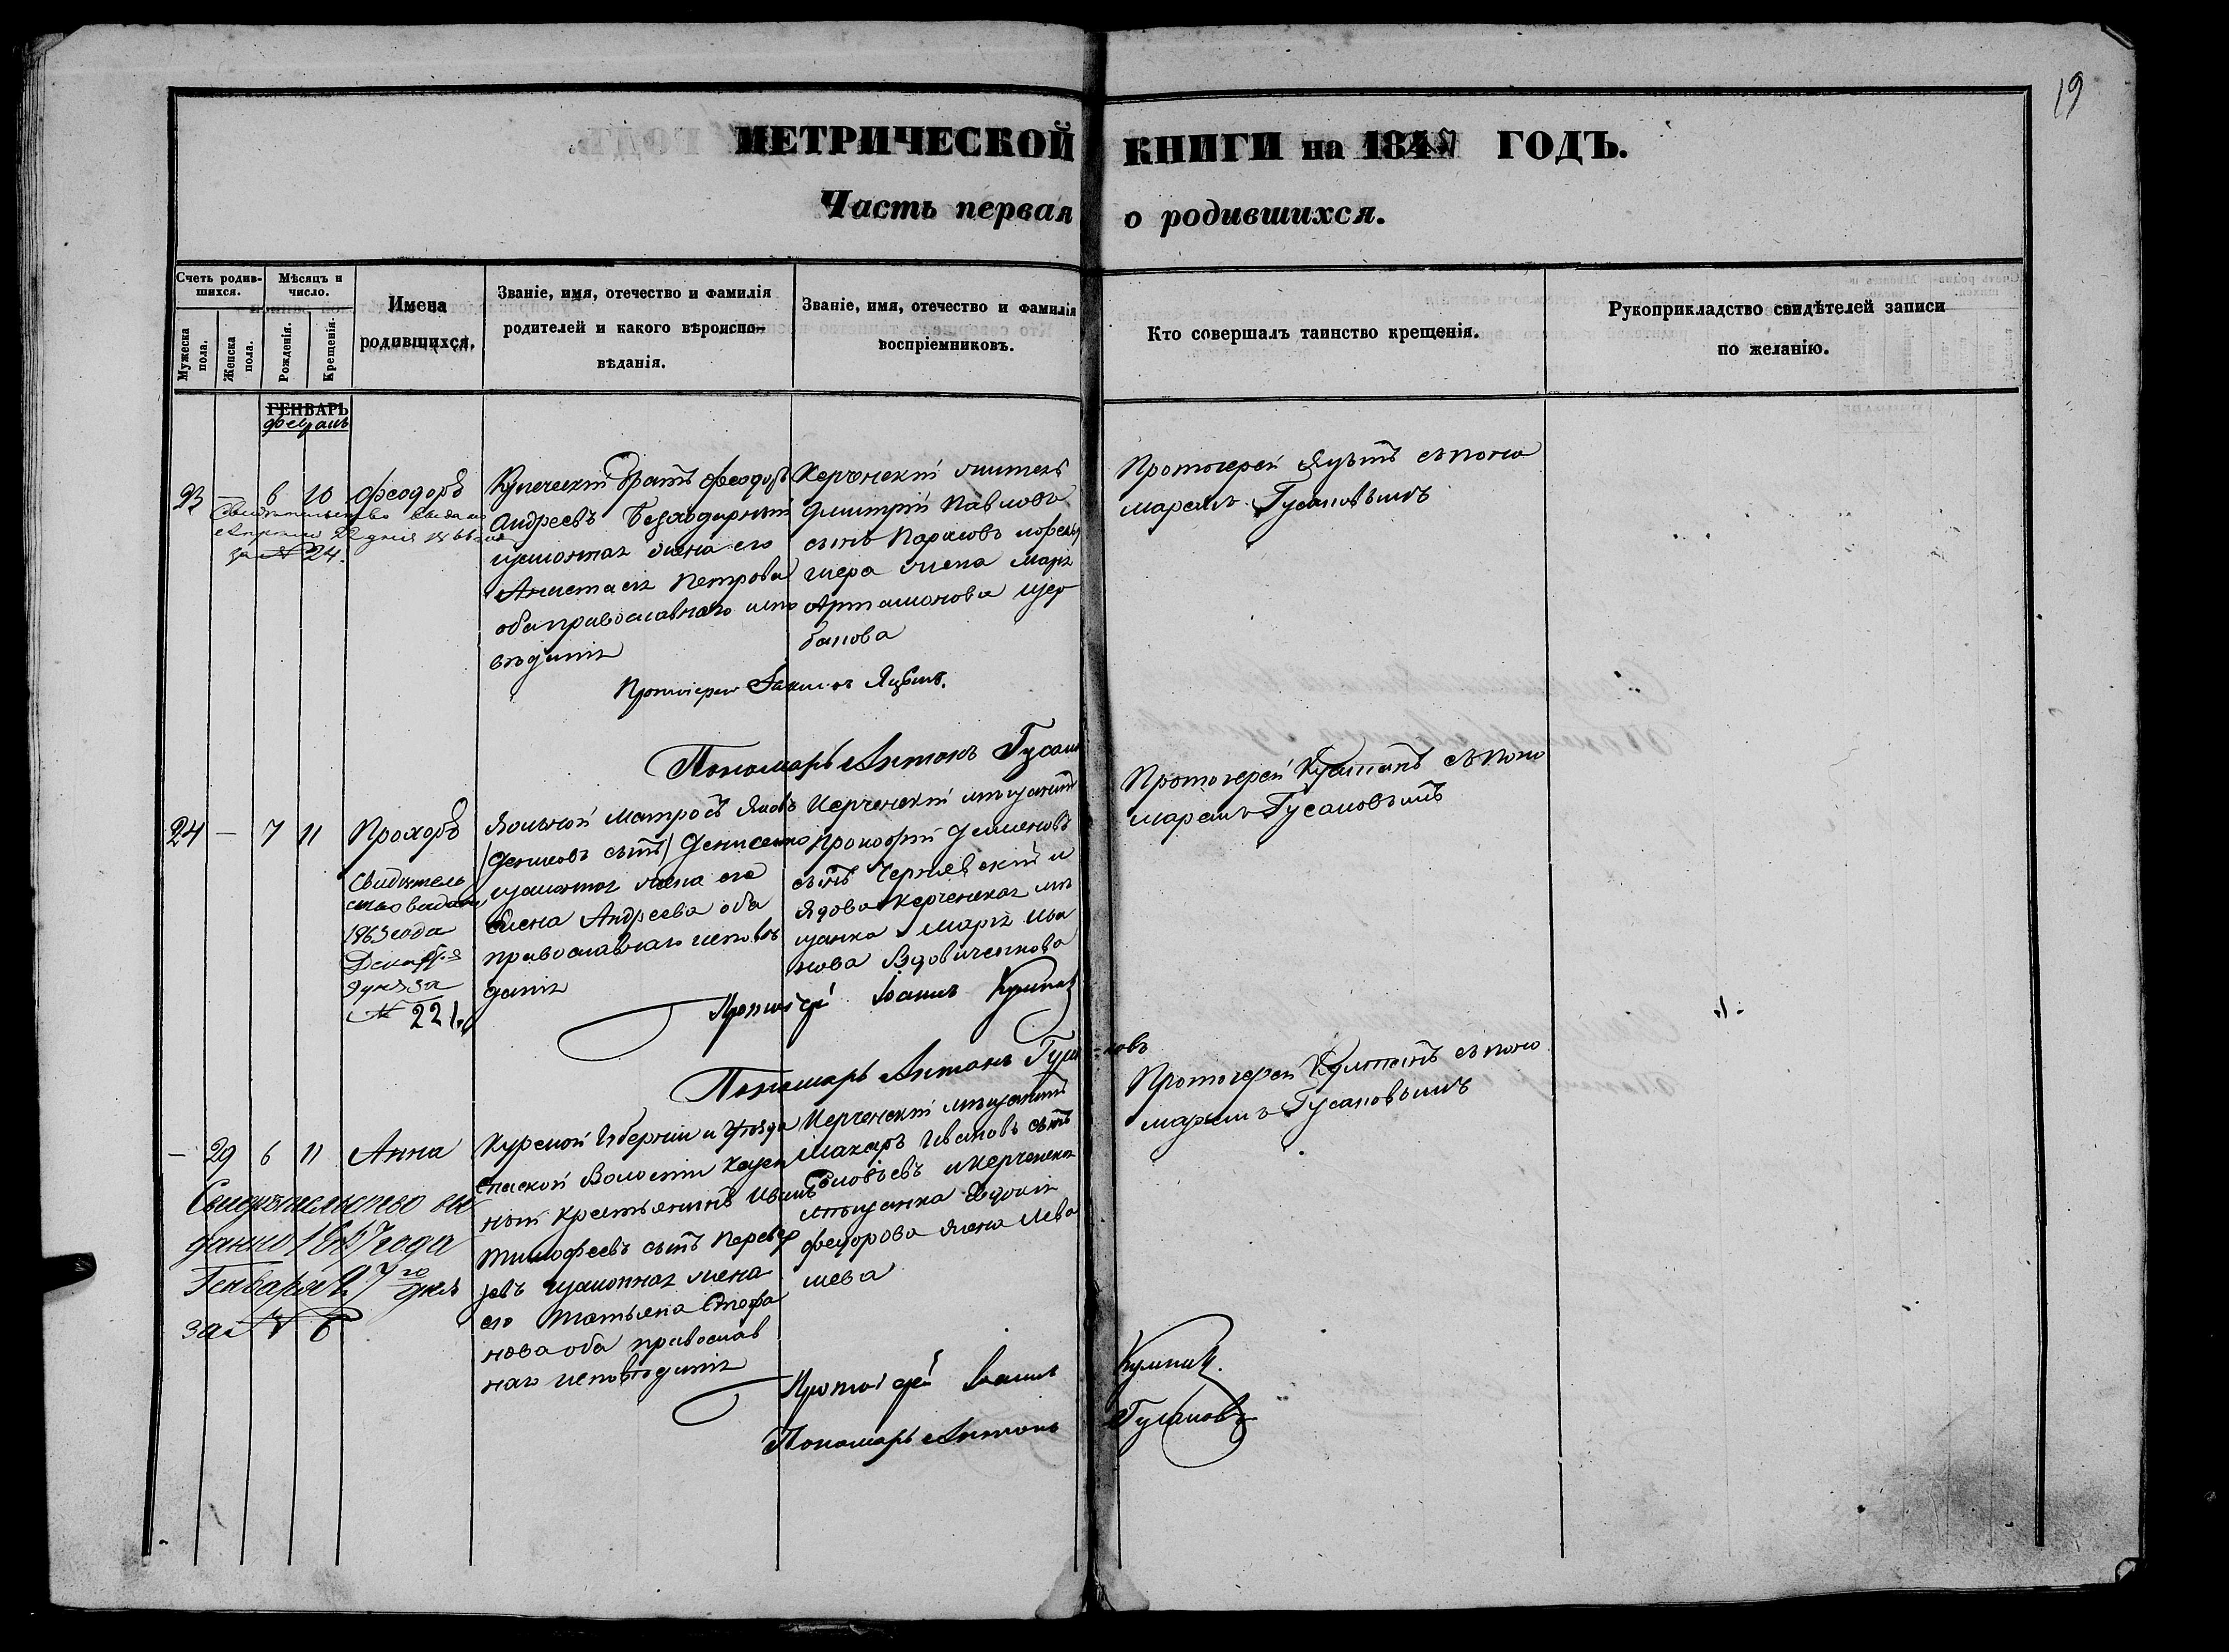 19
МЕТРИЧЕСКОЙ КНИГИ на 1847 ГОДЪ.
Часть первая о родившихся.
Счетъ родив-
шихся.
Мужеска
пола.
Женска
пола.
Мѣсяцъ и
число.
Рожденія.
Крещенія.
Имена
родившихся.
Званіе, имя, отечество и фамилія
родителей и какого вѣроиспо-
вѣданія.
Званіе, имя, отечество и фамилія
воспріемниковъ.
Кто совершалъ таинство крещенія.
Рукоприкладство свидѣтелей записи
по желанію.
ГЕНВАРЬ
февраль
23 — 6 10 Феодоръ
за № 24.
Купеческій братъ Феодоръ
Андреевъ Безходарный
законная жена его
Анастасія Петрова
оба православнаго испо
вѣданія
Керченскій житель
Дмитрій Павловъ
сынъ
жена Марія
Артамонова Щер
бакова
Протоіерей Яцынъ съ поно
маремъ Гусаковымъ
Протоіерей Яцынъ.
Пономарь Антонъ Гусаковъ
24 — 7 11 Прохоръ
Свидѣтель
ство выдано
1863 года
Декабря
дня за
№ 221.
Вольной Матросъ Яковъ
Денисовъ сынъ Денисенко
законная жена его
Елена Андреева оба
православнаго исповѣ
данія
Керченскій мѣщанинъ
Прокофій Семеновъ
сынъ Чернявскій и
вдова керченская мѣ
щанка Марія Ива
нова Вдовиченкова
Протоіерей съ поно
маремъ Гусаковымъ
Протоіерей Іоаннъ
Пономарь Антонъ Гусаковъ
— 29 6 11 Анна
Свидѣтельство вы
данно года
Генваря 27го дня
за № 6
Курской Губерніи и Уѣзда
Спаской Волости казен
ный крестьянинъ Иванъ
Тимофеевъ сынъ
законная жена
его Татьяна Стефа
нова оба православ
наго исповѣданія
Керченскій мѣщанинъ
Макаръ Ивановъ сынъ
Соловьевъ и керченская
мѣщанка Евдокія
Федорова жена
Протоіерей съ поно
маремъ Гусаковымъ
Протоіерей Іоаннъ
Пономарь Антонъ Гусаковъ